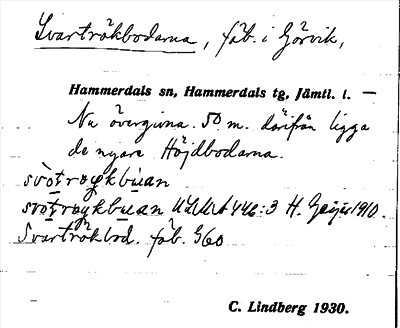 Svartråkbodarna, fäb. i Görvik,
Hammerdals sn, Hammerdals tg, Jämtl. l. —
Nu övergivna. 50 m. därifrån ligga
de nyare Höjdbodarna.
ULMA 446:3 H. Geijer 1910.
Svartråkbod. fäb. G60
C. Lindberg 1930.